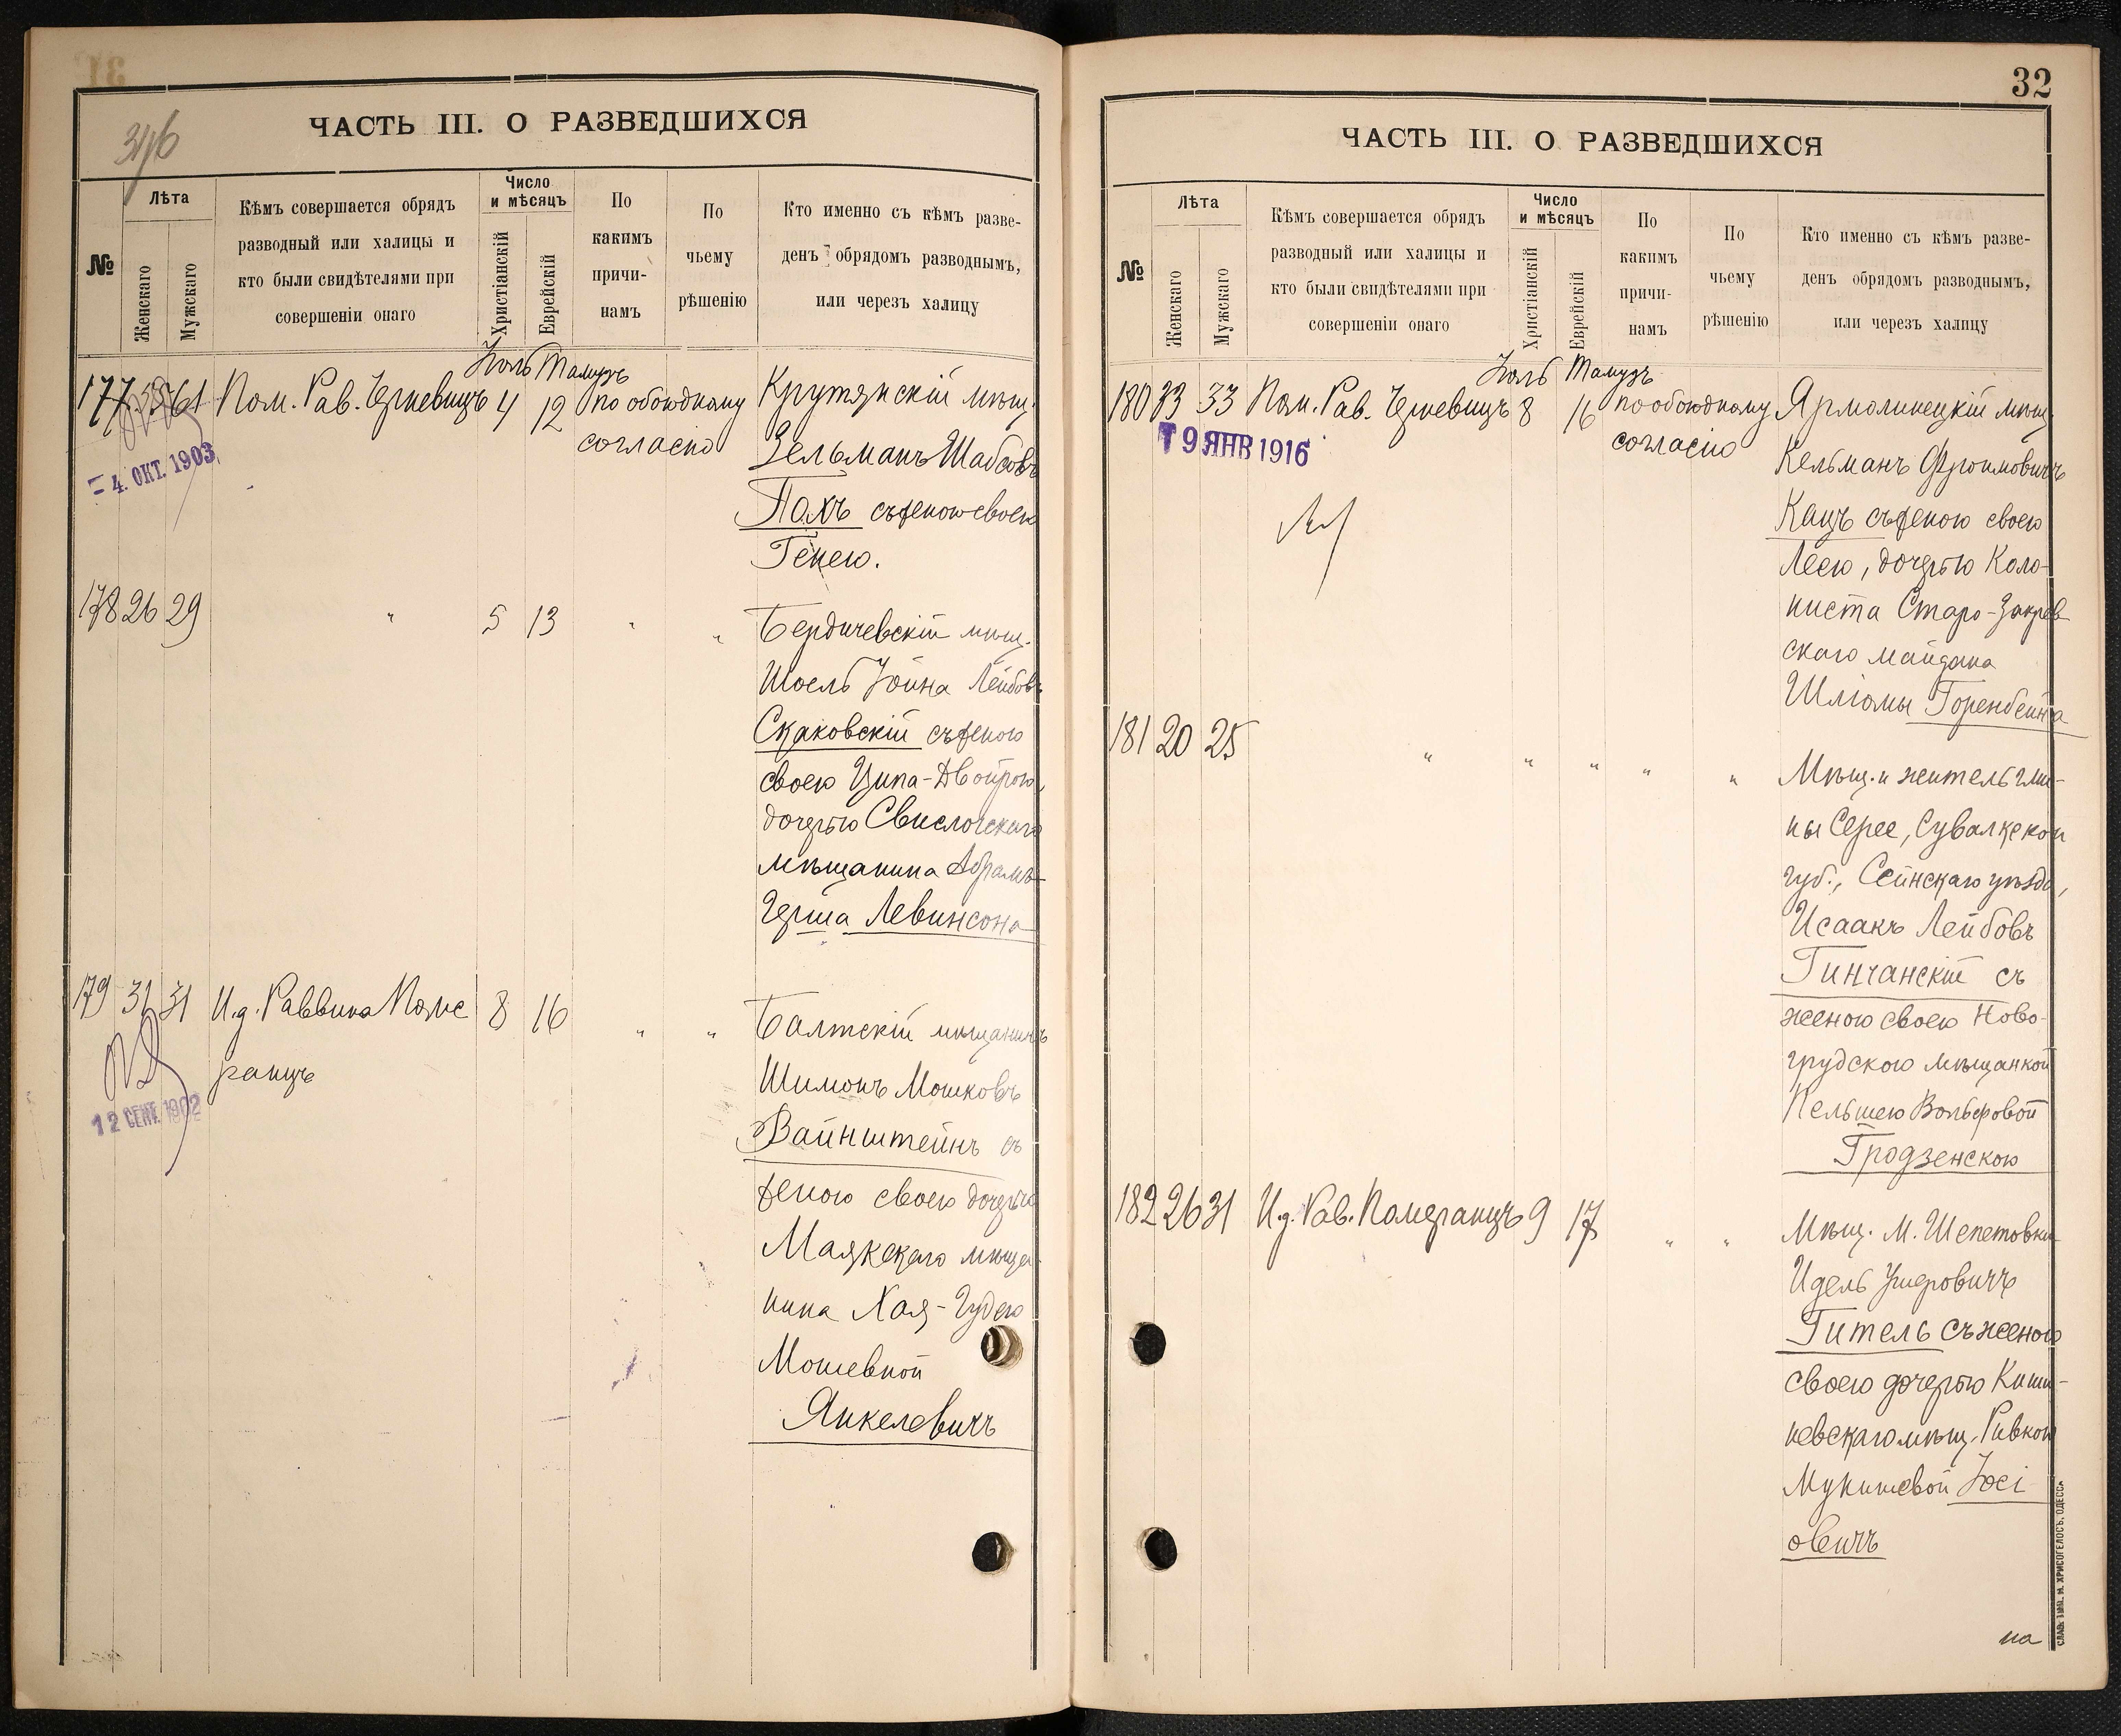 ЧАСТЬ III. О РАЗВЕДШИХСЯ
№
Лѣта
Женскаго
Мужскаго
Кѣмъ совершается обрядъ
разводный или халицы и
кто были свидѣтелями при
совершеніи онаго
Число
и мѣсяцъ
Христіанскій
Еврейскій
По
какимъ
причи-
намъ
По
чьему
рѣшенію
Кто именно съ кѣмъ разве-
денъ обрядомъ разводнымъ,
или черезъ халицу
Іюль Тамузъ
177 61 Пом. Рав. Черневицъ 4 12 по обоюдному
согласію
= 4. ОКТ. 1903
Крутянскій мѣщ.
Зельманъ Шабсовъ
Пахъ съ женою своею
Генею.
178 26 29 " 5 13 " "
Бердичевскій мѣщ.
Шоель Іойна Лейбовъ
Скаковскій съ женою
своею Ципа-Двойрою,
дочерью Свислочскаго
мѣщанина Абрамъ-
Герша Левинсона
179 31 31 И.д. Раввина Поме 8 16 " "
ранцъ
12 СЕНТ. 1902
Балтскій мѣщанинъ
Шимонъ Мошковъ
Вайнштейнъ съ
женою своею дочерью
Маякскаго мѣща-
нина Хая-Гудею
Мошевной
Янкелевичъ
32
ЧАСТЬ III. О РАЗВЕДШИХСЯ
№
Лѣта
Женскаго
Мужскаго
Кѣмъ совершается обрядъ
разводный или халицы и
кто были свидѣтелями при
совершеніи онаго
Число
и мѣсяцъ
Христіанскій
Еврейскій
По
какимъ
причи-
намъ
По
чьему
рѣшенію
Кто именно съ кѣмъ разве-
денъ обрядомъ разводнымъ,
или черезъ халицу
Іюль Тамузъ
180 33 33 Пом. Рав. Черневицъ 8 16 по обоюдному
согласію
19 ЯНВ 1916
Ярмолинецкій мѣщ.
Кельманъ Фроимовичъ
Кацъ съ женою своею
Леею, дочерью Коло-
ниста Старо-Закрев
скаго майдана
Шліомы Горенбейна
181 20 25 " " " " "
Мѣщ. и житель гми-
ны Серее, Сувалкской
губ., Сейнскаго уѣзда,
Исаакъ Лейбовъ
Гинчанскій съ
женою своею Ново-
грудскою мѣщанкой
Пельшею Вольфовой
Гродзенскою
182 26 31 И.д. Рав. Померанцъ 9 17 " "
Мѣщ. М. Шепетовки
Идель Ушеровичъ
Гитель съ женою
своею дочерью Киши-
невскаго мѣщ. Ривкою
Мунишевой Іосі
овичъ
на
СЛАВ. ТИП. Н. ХРИСОГЕЛОСЪ, ОДЕССА